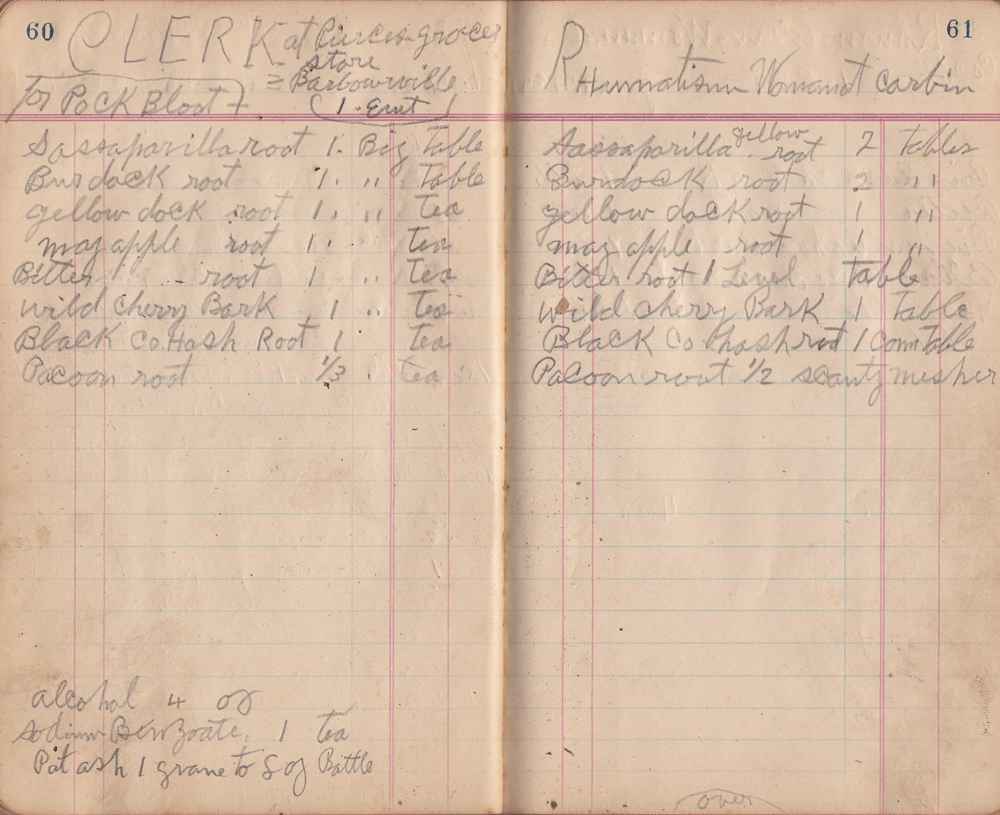 60
CLERK at Pierces grocer
store
= Barbourville
for Pock Bloot
(1. Ernt)
Sassaparilla root 1. Big Table
Burdock root 1. " Table
yellow dock root 1. " tea
may apple root 1. . tea
Bitter - root 1 " tea
wild cherry Bark 1 " tea
Black Co.Hash Root 1 tea
Pacoon root 1/3 . tea
alcohol 4 oz
sodium Benzoate. 1 tea
Potash 1 grane to 8 oz Bottle
61
Rhumatism Woman at Carbin
Sassaparilla yellow root 2 Tables
Burdock root 2 "
yellow dock root 1 "
may apple root 1 "
Bitter root 1 Level Table
Wild cherry Bark 1 Table
Black Co hash root 1 Com Table
Pacoon root 1/2 scanty mesher
over